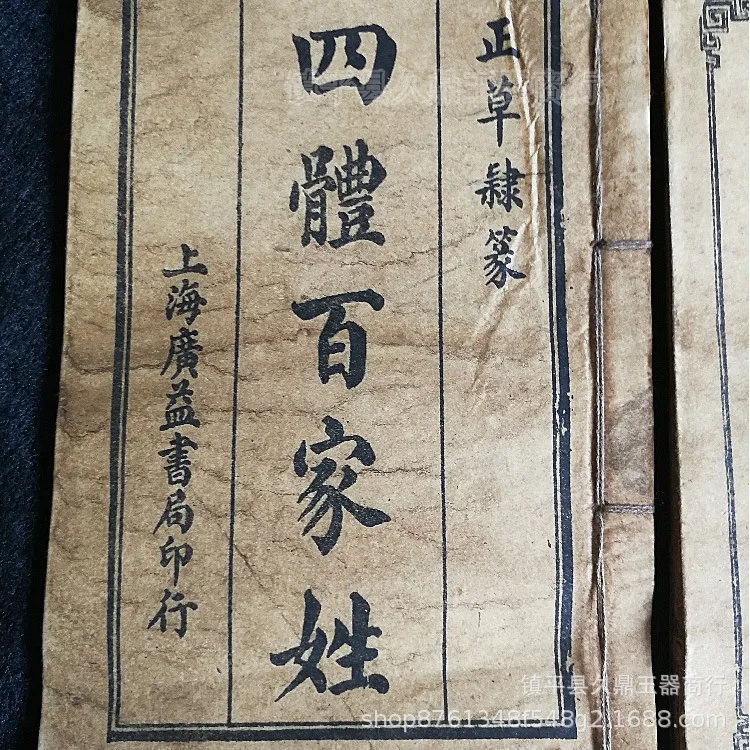 正草隸篆
四體百家姓
上海廣益書局印行
镇平县久鼎玉器商行
镇平县久鼎玉器商行
shop8761348f548g2.1688.com